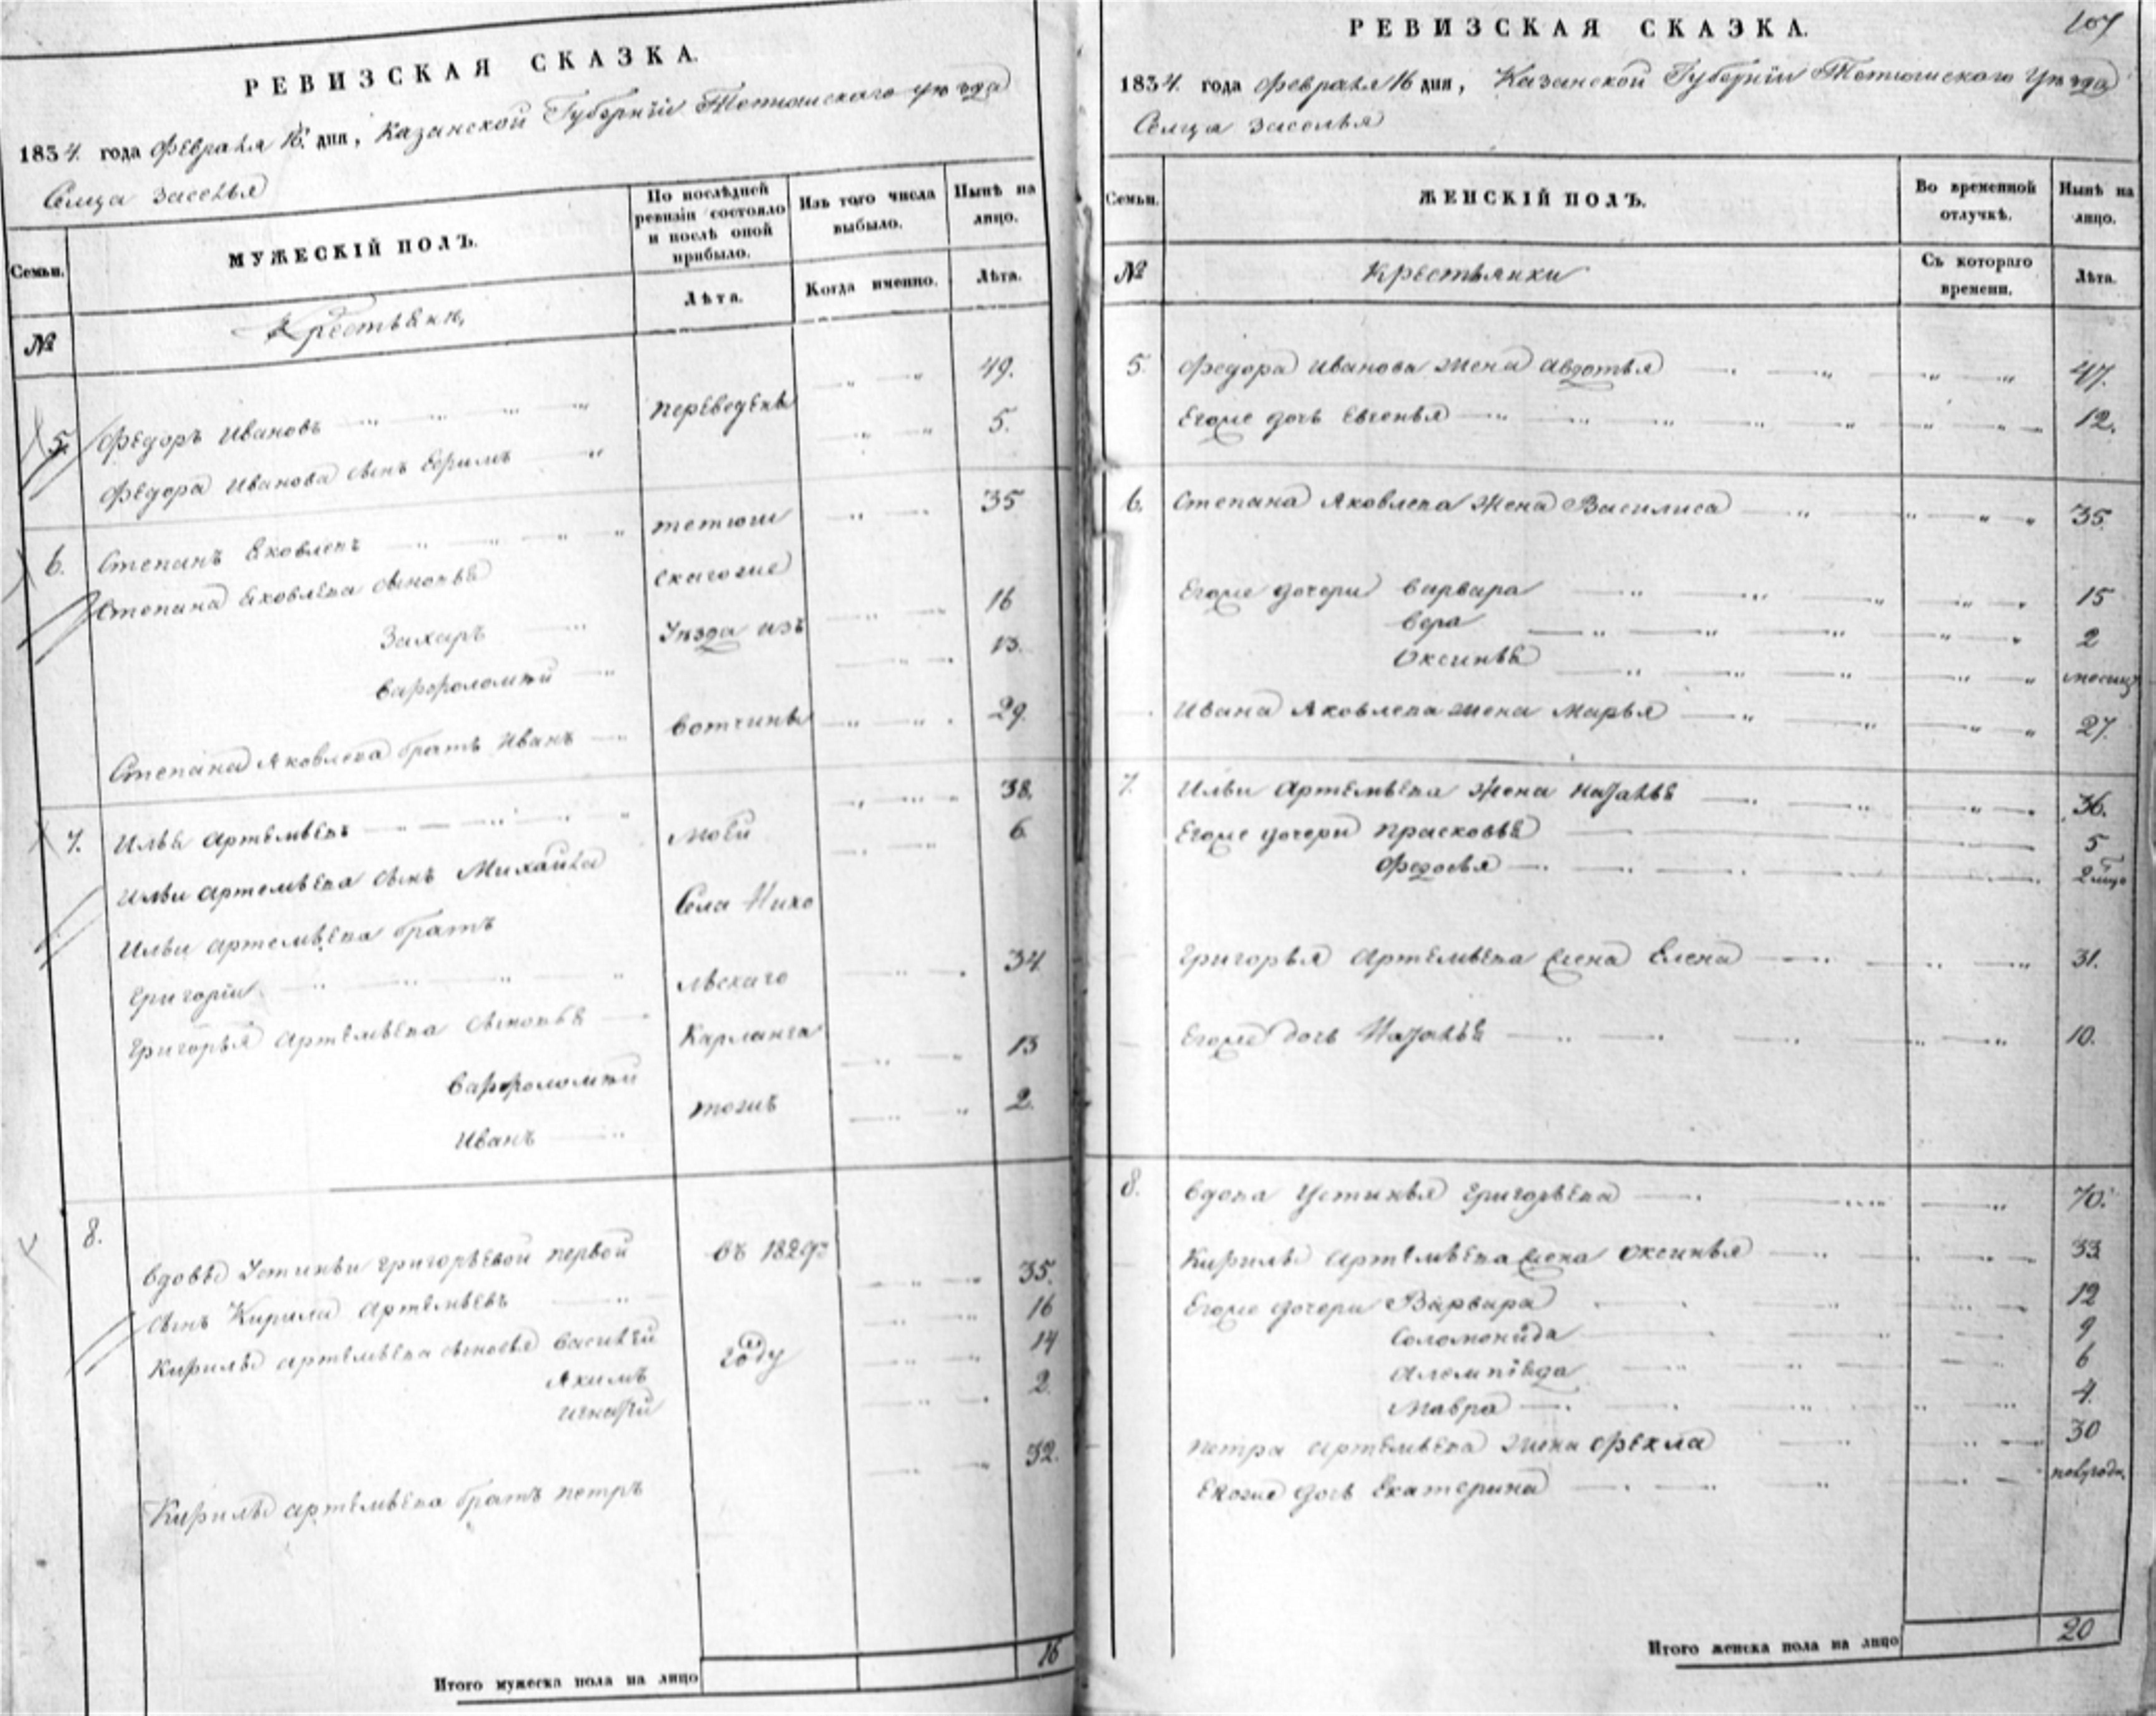 РЕВИЗСКАЯ СКАЗКА.
1834. года Февраля 16. дня, Казанской Губерніи Тетюшскаго уѣзда
Сельца Заселья
Семьи.
МУЖЕСКІЙ ПОЛЪ.
По послѣдней ревизіи состояло и послѣ оной прибыло.
Изъ того числа выбыло.
Нынѣ на лицо.
№
Крестьяни,
Лѣта.
Когда именно.
Лѣта.
5. Федоръ Ивановъ переведены 49.
Федора Иванова сынъ Ефимъ 5.
6. Степанъ Яковлевъ тетюш 35
Степана Яковлева сыновья скагоже
Захаръ Уѣзда изъ 16
Варфоломѣй 13.
Степана Яковлева братъ Иванъ вотчины 29.
7. Илья Артемьевъ моей 38.
Ильи Артемьева сынъ Михайла 6
Ильи Артемьева братъ Села Нико
Григорій льскаго 34
Григорья Артемьева сыновья Карланга
Варфоломѣй 13
Иванъ тожъ 2.
8. Вдовы Устиньи Григорьевой первой въ 1829м
сынъ Кирила Артемьевъ 35.
Кирилы Артемьева сыновья Василей году 16
Акимъ 14
Игнатій 2.
Кирилы Артемьева братъ Петръ 32.
Итого мужеска пола на лицо 16
РЕВИЗСКАЯ СКАЗКА.
107
1834. года Февраля 16 дня, Казанской Губерніи Тетюшскаго Уѣзда
Сельца Заселья
Семьи.
ЖЕНСКІЙ ПОЛЪ.
Во временной отлучкѣ.
Нынѣ на лицо.
№
Крестьянки
Съ котораго времени.
Лѣта.
5. Федора Иванова жена Авдотья 47.
Егоже дочь Евгенья 12.
6. Степана Яковлева жена Василиса 35.
Егоже дочери Варвара 15
Вера 2
Оксинья месяц
Ивана Яковлева жена Марья 27.
7. Ильи Артемьева жена Наталья 36.
Егоже дочери Прасковья 5
Федосья
Григорья Артемьева жена Елена 31.
Егоже дочь Наталья 10.
8. Вдова Устинья Григорьева 70.
Кирилы Артемьева жена Оксинья 33
Егоже дочери Варвара 12
Соломонида 9
Алемпіяда 6
Мавра 4.
Петра Артемьева жена Фекла 30
Егоже дочь Екатерина полугода.
Итого женска пола на лицо 20